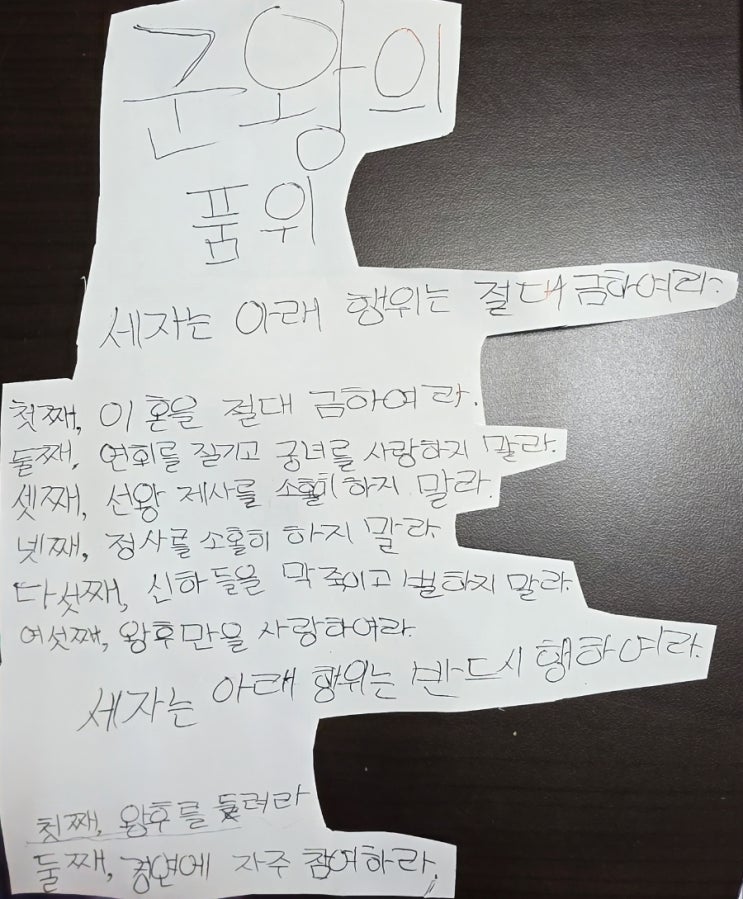 군왕의
품위
세자는 아래 행위는 절대 금하여라.
첫째, 이혼을 절대 금하여라.
둘째, 연회를 질기고 궁녀를 사랑하지 말라.
셋째, 선왕 제사를 소홀히 하지 말라.
넷째, 정사를 소홀히 하지 말라.
다섯째, 신하들을 막 죽이고 벌하지 말라.
여섯째, 왕후만을 사랑하여라.
세자는 아래 행위는 반드시 행하여라.
첫째, 왕후를 려라
둘째, 경연에 자주 참여하라.